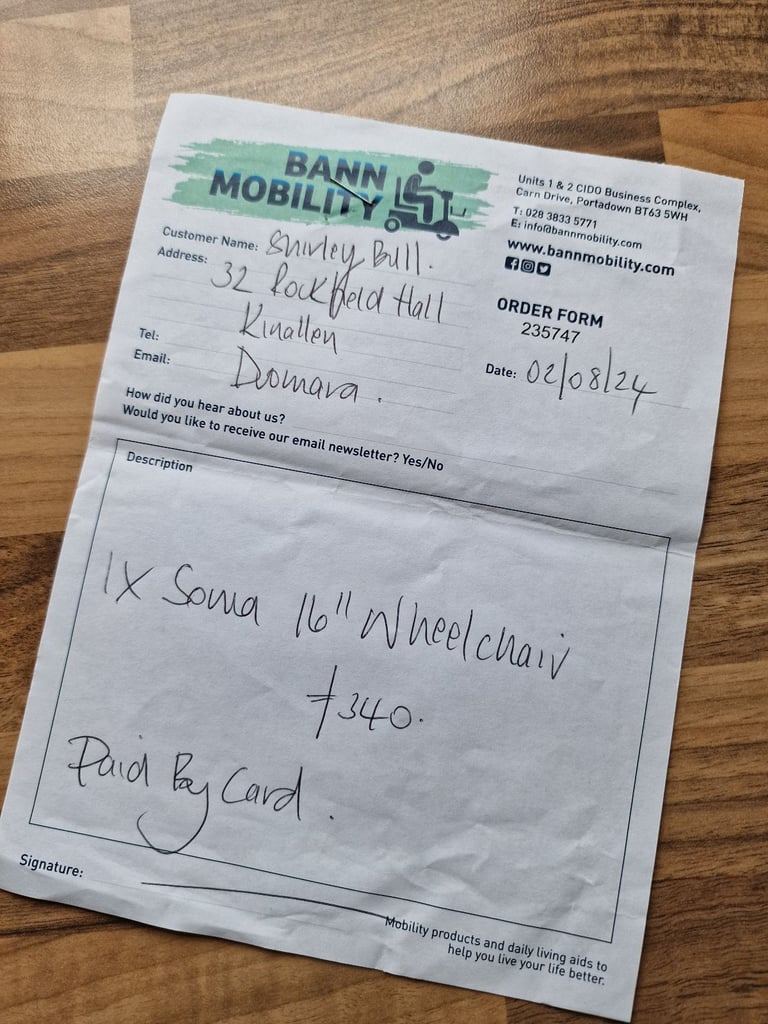 BANN
MOBILITY
Units 1 & 2 CIDO Business Complex,
Carn Drive, Portadown BT63 5WH
T: 028 3833 5771
E: info@bannmobility.com
www.bannmobility.com
Customer Name: Shirley Bull.
Address: 32 Rockfield Hall
Kinallen
Tel:
Email: Dromara.
ORDER FORM
235747
Date: 02/08/24
How did you hear about us?
Would you like to receive our email newsletter? Yes/No
Description
1X Soma 16" Wheelchair
£340.
Paid By Card.
Signature:
Mobility products and daily living aids to
help you live your life better.